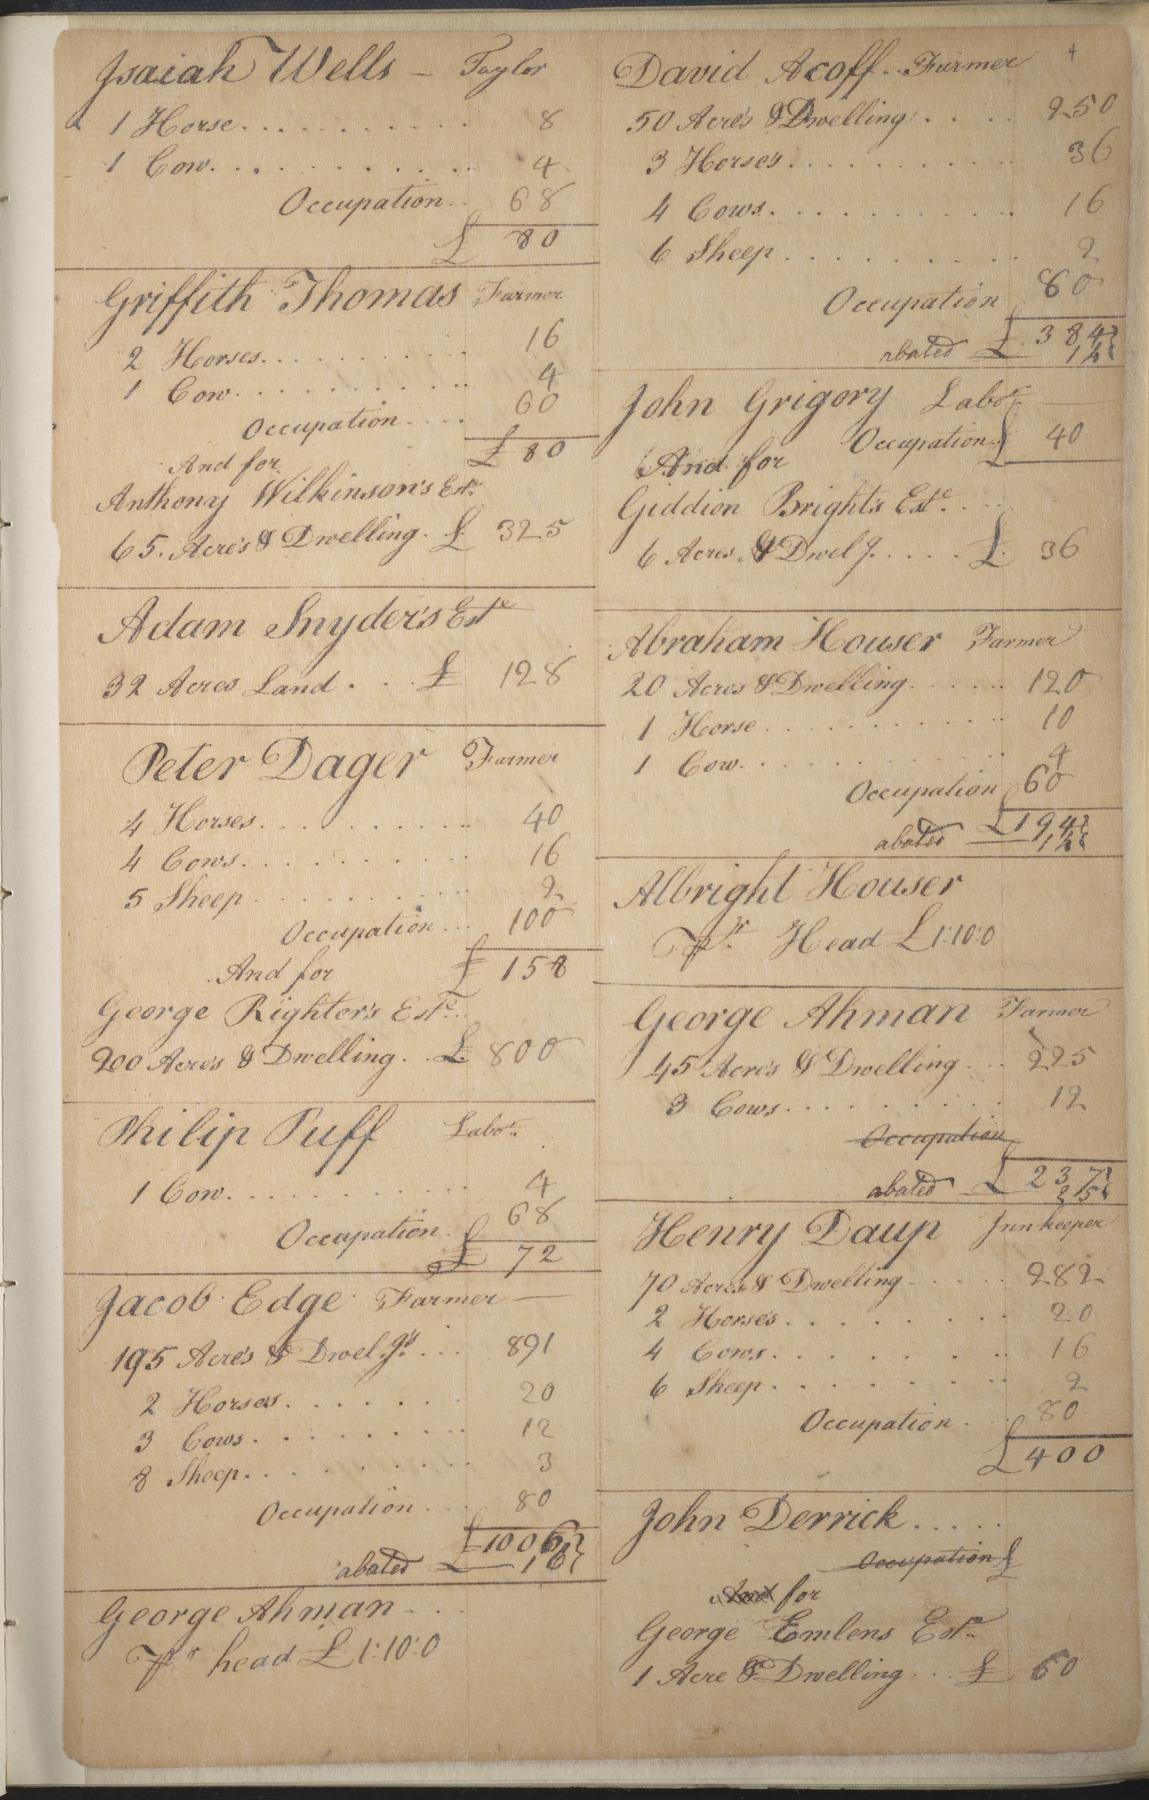 Isaiah Wells – Taylor
1 Horse . . . . . . . . . . 8
1 Cow . . . . . . . . . . . 4
Occupation . . 68
£ 80
Griffith Thomas Farmer
2 Horses . . . . . . . . . . 16
1 Cow . . . . . . . . . . . 4
Occupation . . . . 60
£ 80
And for
Anthony Wilkinson's Este
65 . Acre's & Dwelling . £ 325
Adam Snyder's Este
32 Acres Land . . . £ 128
Peter Dager Farmer
4 Horses . . . . . . . . . . 40
4 Cows . . . . . . . . . . . 16
5 Sheep . . . . . . . . . . 2
Occupation . . . 100
And for £ 158
George Righter's Este . .
200 Acre's & Dwelling . . £ 800
Philip Puff Labor.
1 Cow . . . . . . . . . . . 4
Occupation . 68
£ 72
Jacob Edge Farmer —
195 Acre's & Dwelg's . . . 891
2 Horses . . . . . . . 20
3 Cows . . . . . . . . . 12
8 Sheep . . . . . . . . . 3
Occupation . . . 80
£ 1006
abated £ — 16
George Ahman . . .
Pr head £ 1:10:0
4
David Acoff . . Farmer
50 Acre's & Dwelling . . . . 250
3 Horses . . . . . . . . . . 36
4 Cows . . . . . . . . . . 16
6 Sheep . . . . . . . . . . 2
Occupation 80
£ 384
abated 14
John Grigory Labor. —
Occupation £ 40
And for
Giddion Bright's Este . . .
6 Acres & Dwelg . . . . . £ 36
Abraham Houser Farmer
20 Acres & Dwelling . . . . . . 120
1 Horse . . . . . . . . . . . 10
1 Cow . . . . . . . . . . . . 4
Occupation 60
£ 194
abated — 14
Albright Houser
Pr Head £ 1:10:0
George Ahman Farmer
45 Acre's & Dwelling . . . 225
3 Cows . . . . . . . . . 12
Occupation
£ 237
abated 25
Henry Daup Innkeeper
70 Acres & Dwelling . . . . . 282
2 Horses . . . . . . . . 20
4 Cows . . . . . . . . . . 16
6 Sheep . . . . . . . . . 2
Occupation . . . 80
£ 400
John Derrick . . . . .
Occupation £
And for
George Emlens Este
1 Acre & Dwelling . . . £ 60